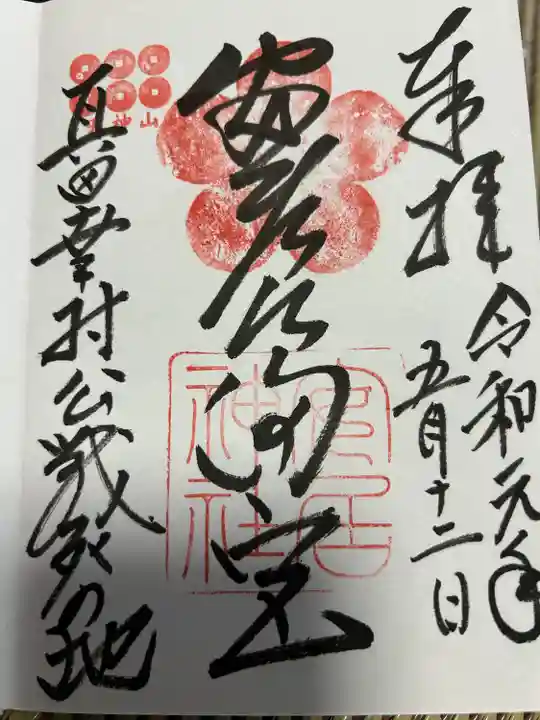 奉拝
令和元年
五月十二日
安居天満宮
安居
神社
真田幸村公戦死の地